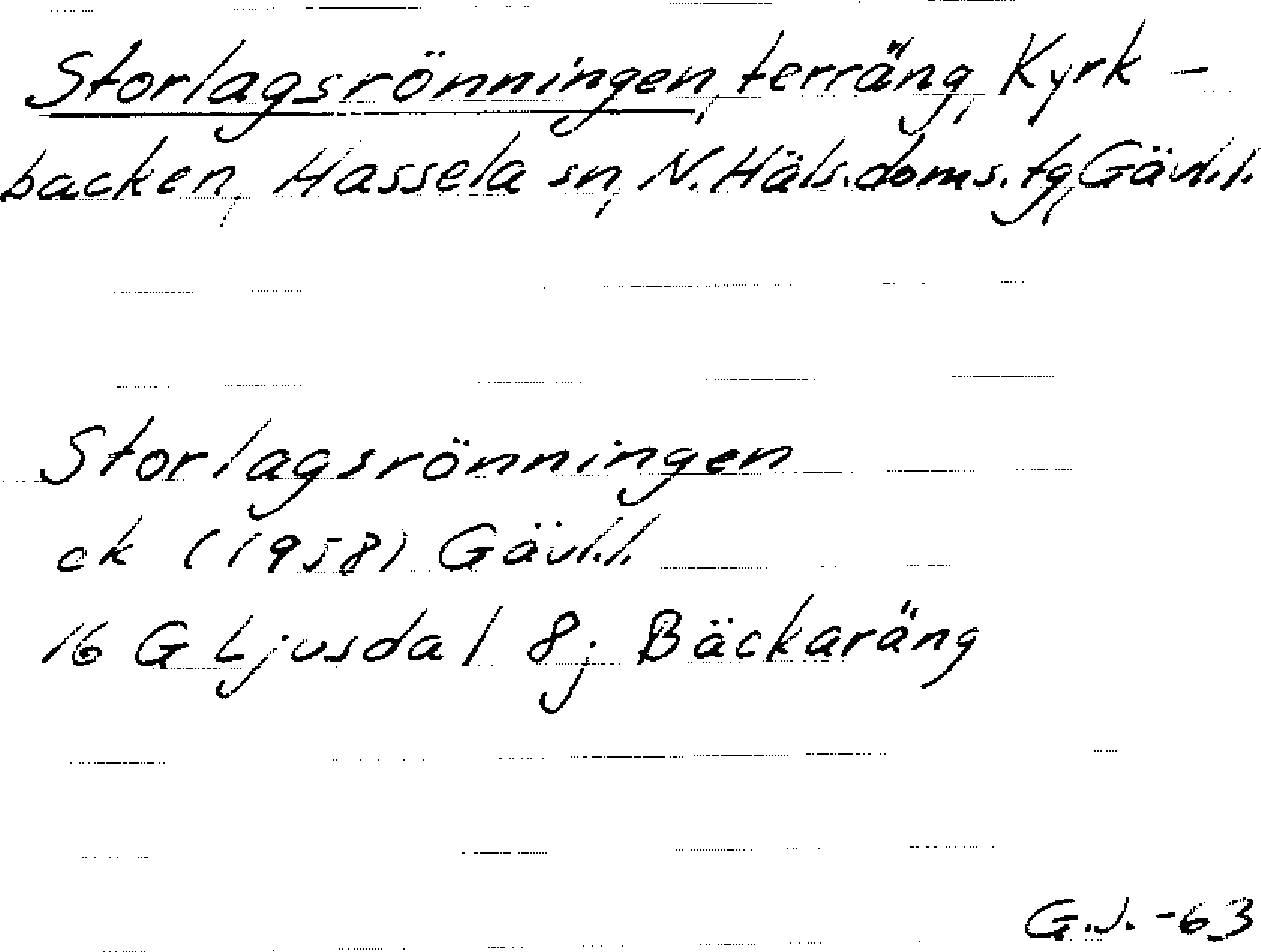 Storlagsrönningen, terräng, Kyrk-
backen, Hassela sn, N. Häls. doms. tg, Gävl.l.
Storlagsrönningen
ek (1958) Gävl.l.
16 G Ljusdal 8j Bäckaräng
G.J. -63